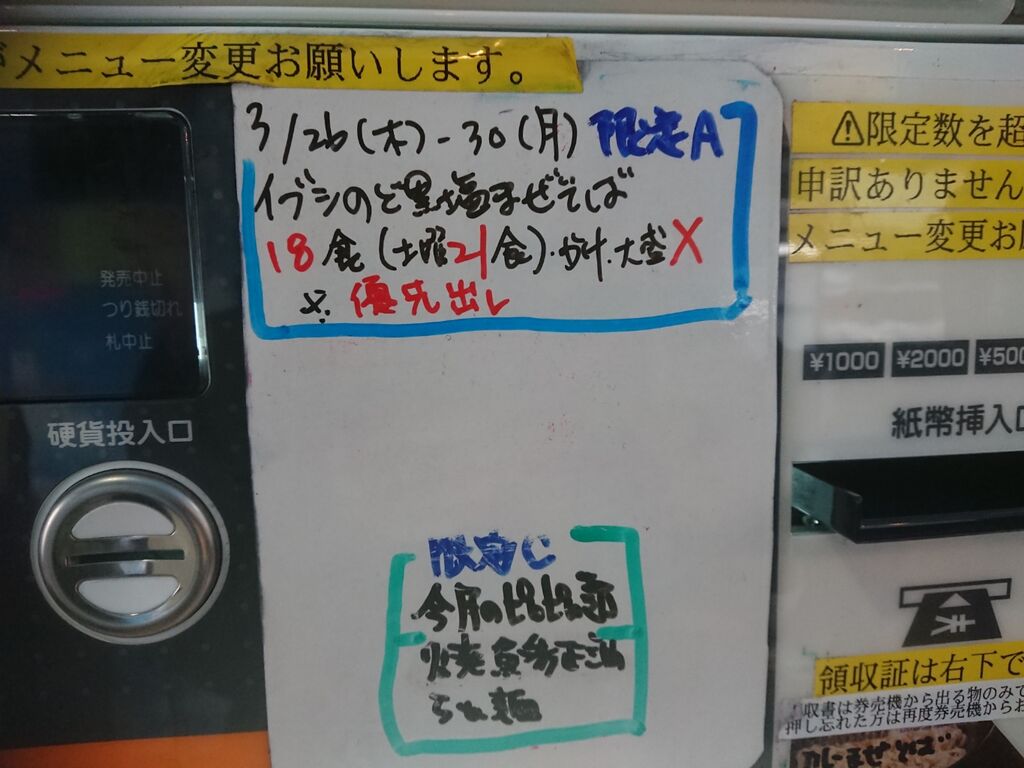 がメニュー変更お願いします。
3/26(木)-30(月) 限定A
イブシのど黒塩まぜそば
18食(土曜21食)・かけ、大盛X
※ 優先出し
発売中止
つり銭切れ
札中止
硬貨投入口
限定C
今月の
らぁ麺
⚠限定数を超
申訳ありません
メニュー変更お
¥1000 ¥2000 ¥500
紙幣挿入口
領収証は右下で
収書は券売機から出る物のみで
押し忘れた方は再度券売機からお
カレーまぜそば